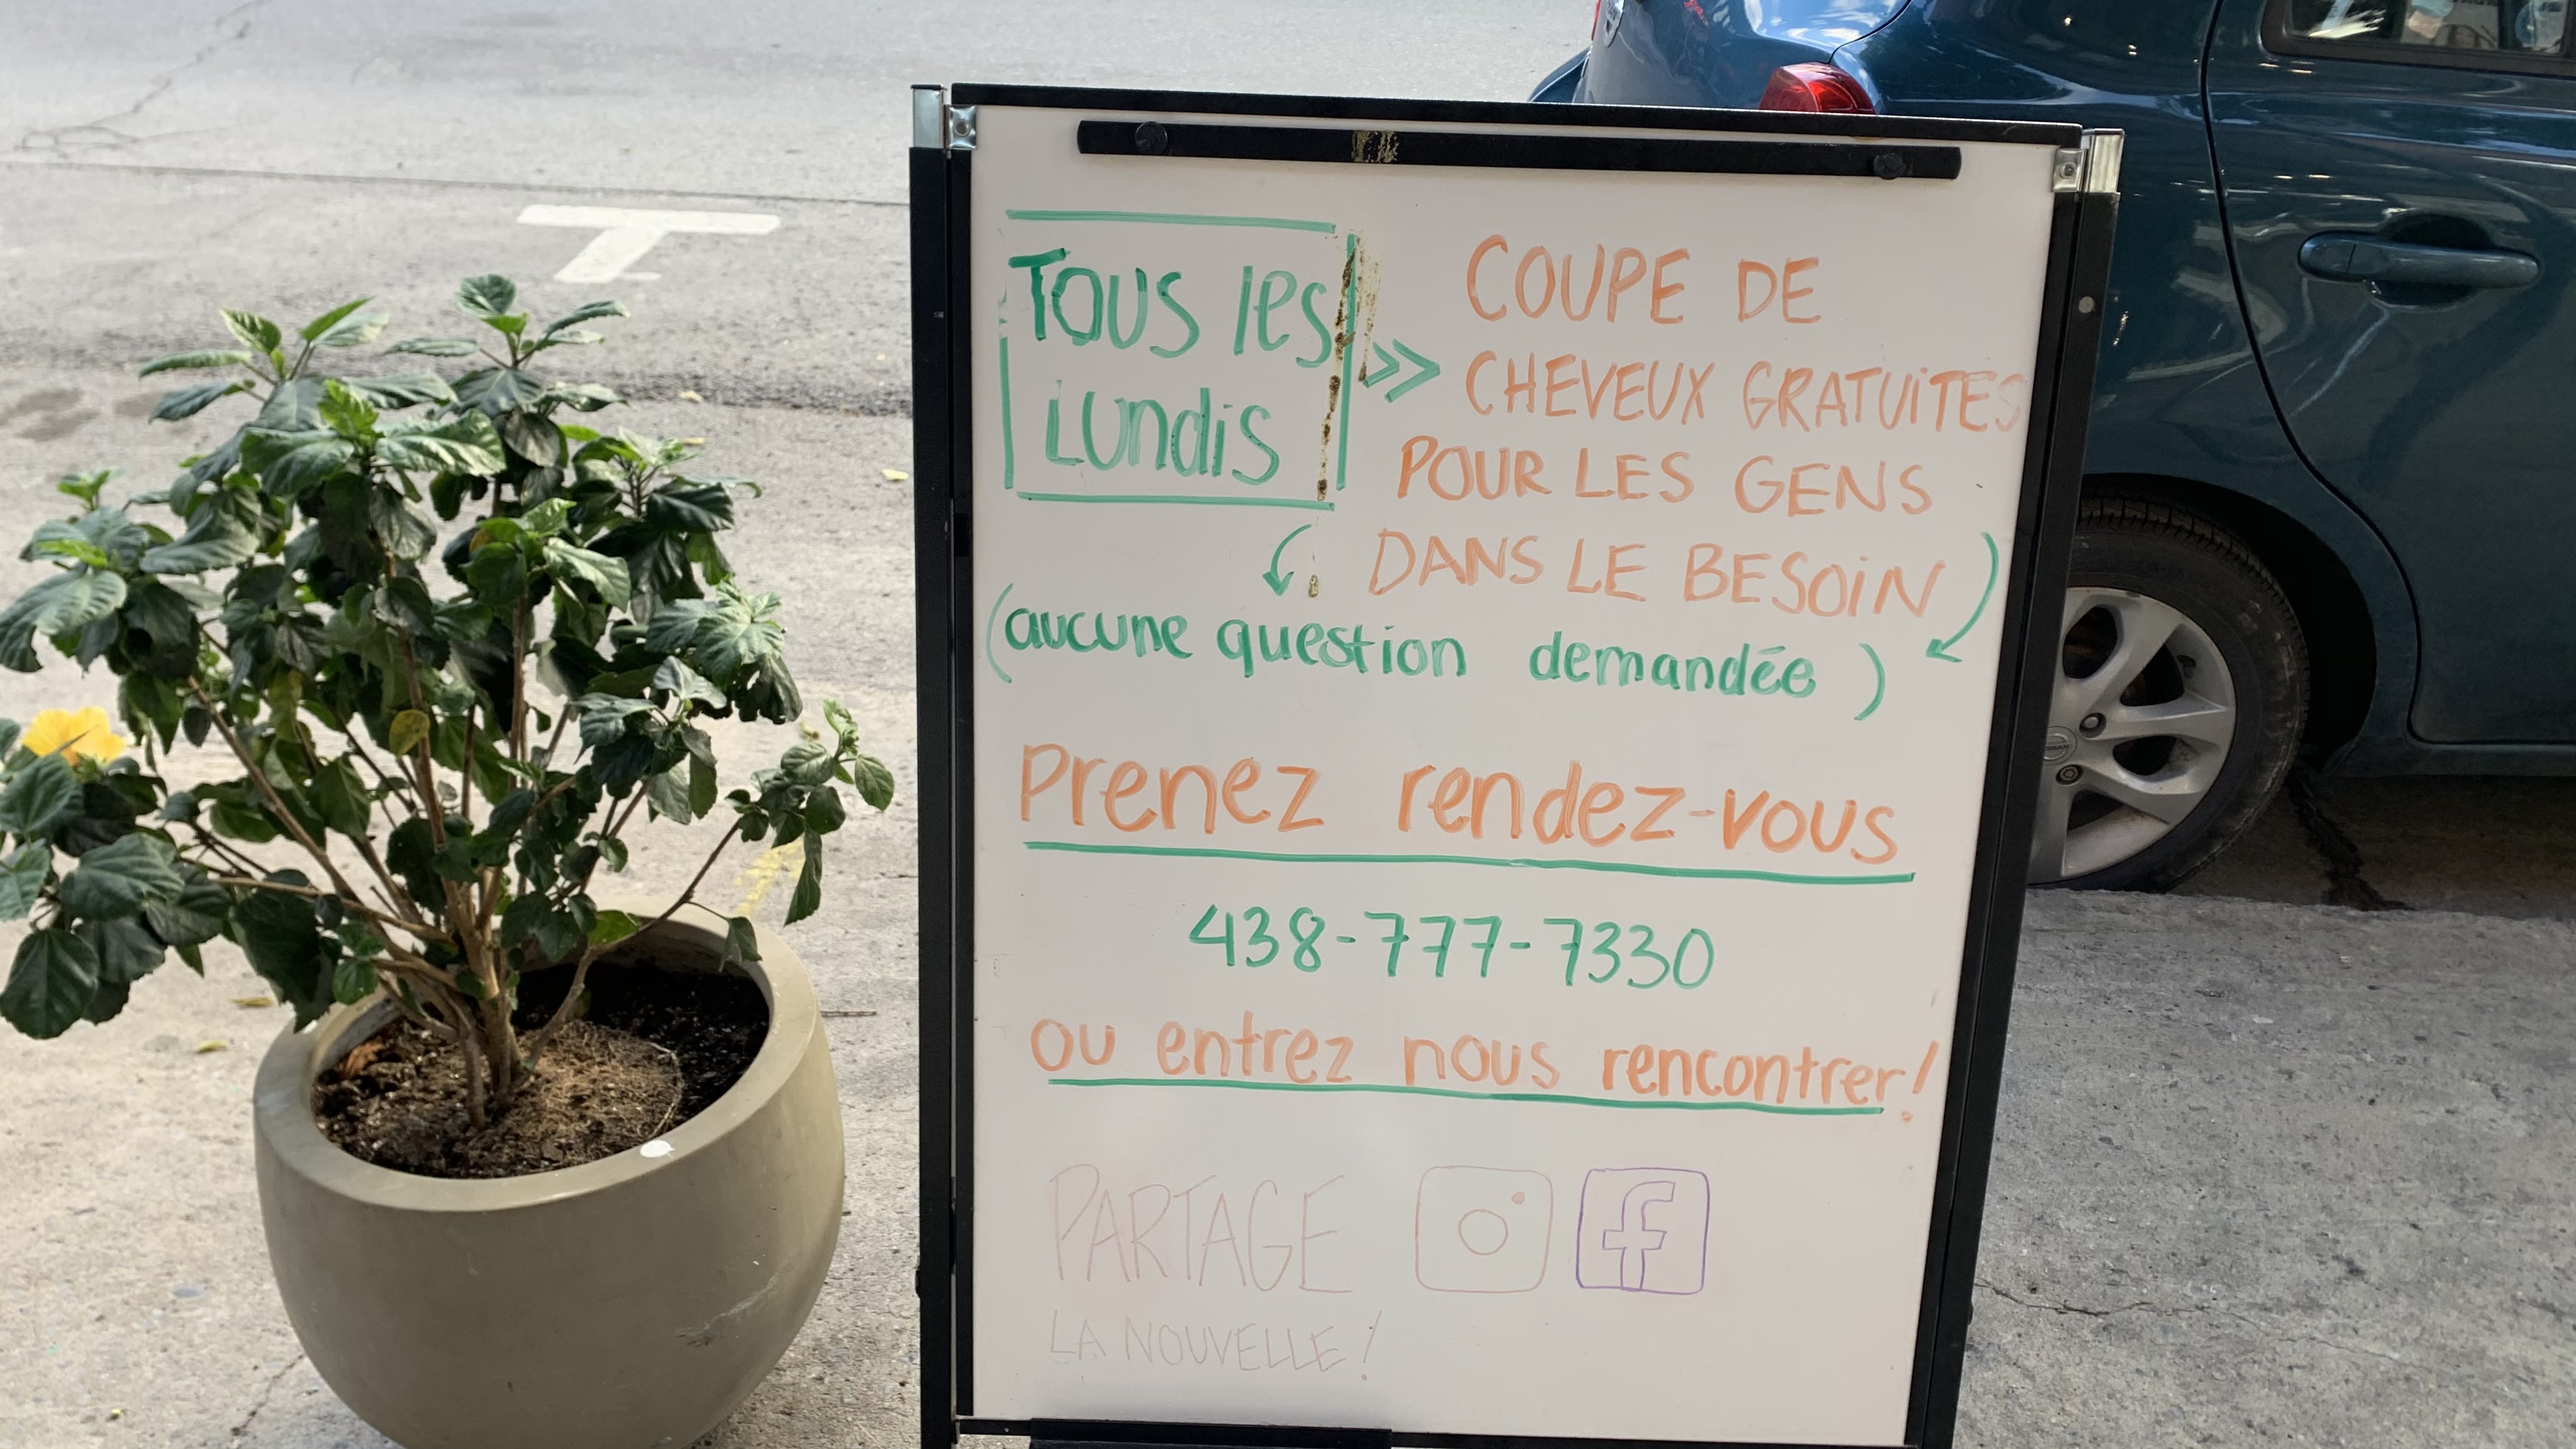 TOUS les
Lundis
>>
COUPE DE
CHEVEUX GRATUiTES
POUR LES GENS
DANS LE BESOiN
(aucune question demandée)
Prenez rendez-vous
438-777-7330
ou entrez nous rencontrer!
PARTAGE
LA NOUVELLE!